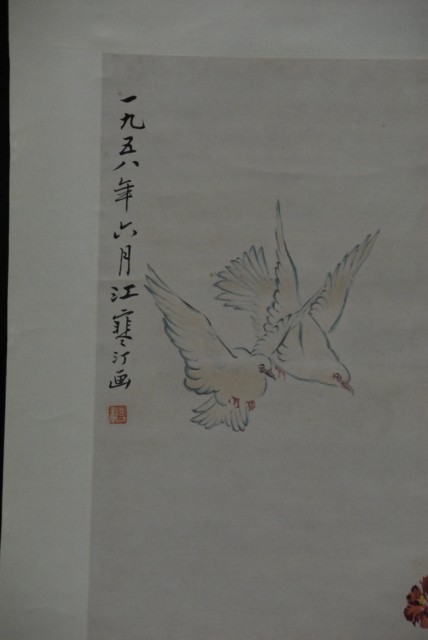 一九五八年六月江寒汀画